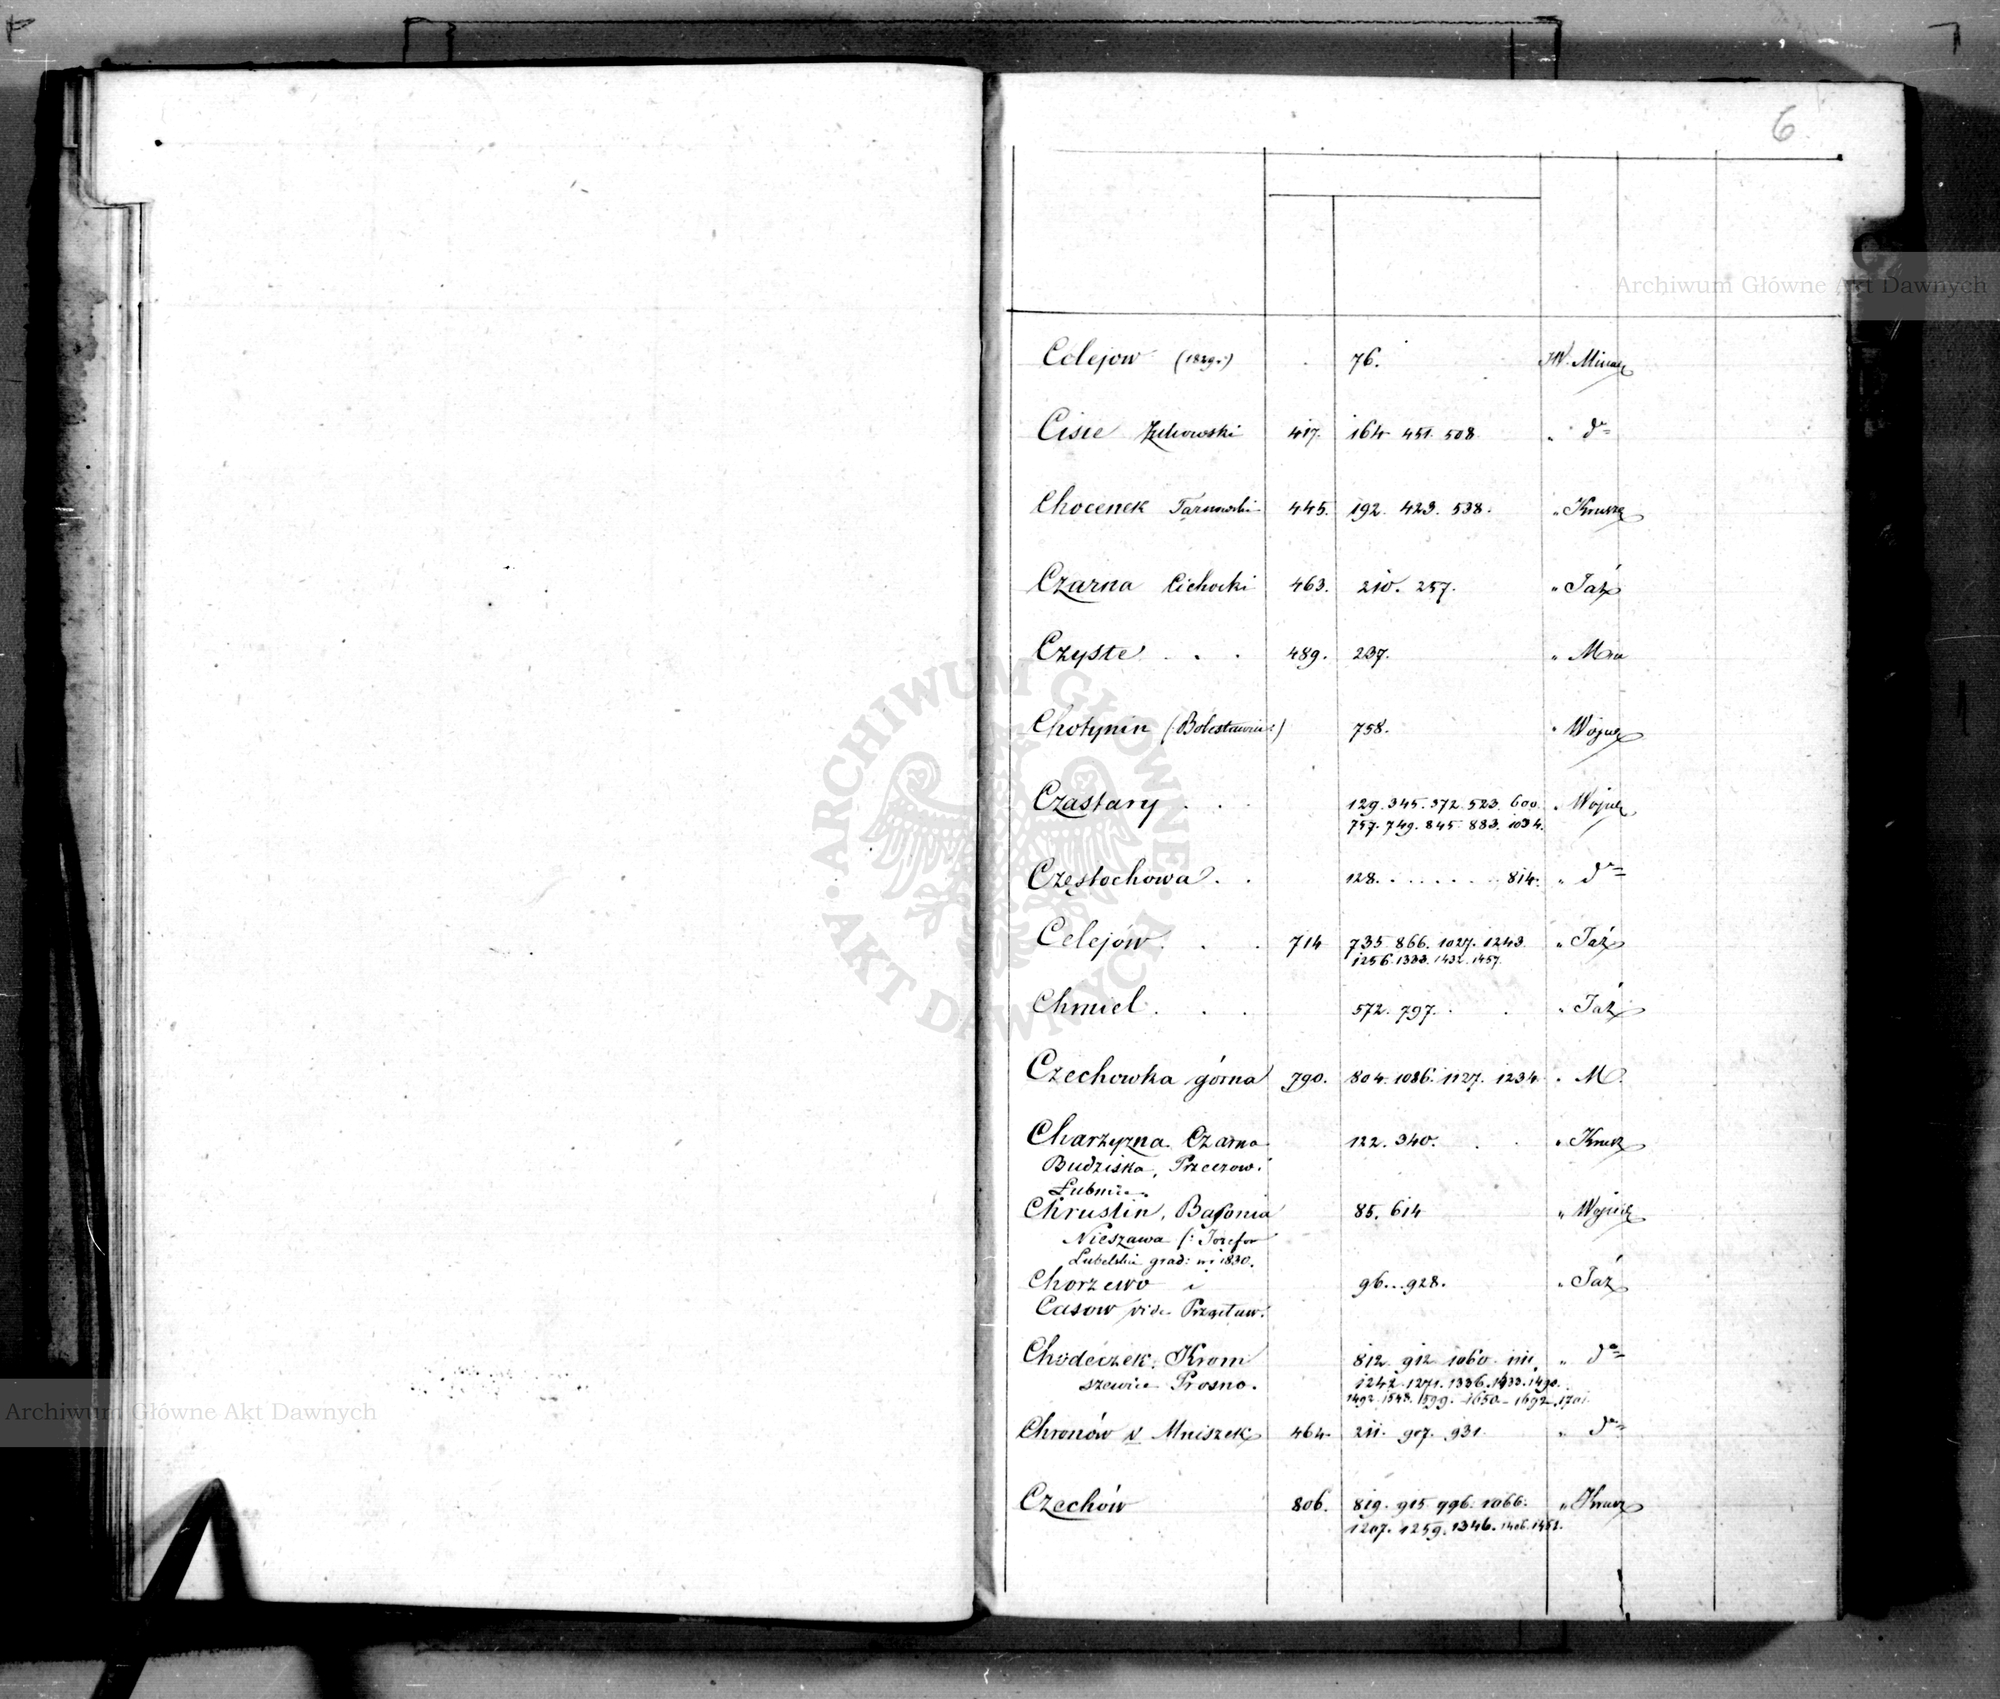 6
Archiwum Główne Akt Dawnych
Celejow (1829.) 76. JW.
Cisie 417. 164 451. 508 " do
Chocenek 445. 192. 423. 538. "
Czarna Cichocki 463. 210. 257. "
Czyste . . . 489. 237. "
Chotynin 758. "
Czastary . . 129. 345. 372. 523. 600. "
757. 749. 845 883. 1034.
Częstochowa . . 128. . . . . . . 814. " do
Celejów . . . 714 735. 866. 1027. 1243. "
1256. 1333. 1432. 1457.
Chmiel . . . 572. 797. "
Czechowka górna 790. 804. 1086. 1127. 1234. " M.
Charzyzna Czarna 122. 340. "
Budziska,
Chrustin, 85. 614 "
Nieszawa
Lubelski 1830.
Chorzewo i 96...928. "
Casow vide
Chodeczek. Krom 812. 912 1060. 1111. " do
szewice Prosno. 1242. 1271. 1336. 1433. 1490.
1492. 1548. 1599. 1650 - 1692 - 1701.
Chronów v Mniszek 464. 211. 907. 931. " do
Czechów 806. 819. 915 996. 1066. "
1207. 1259. 1346. 1406. 1452.
ARCHIWUM GŁÓWNE
AKT DAWNYCH
Archiwum Główne Akt Dawnych